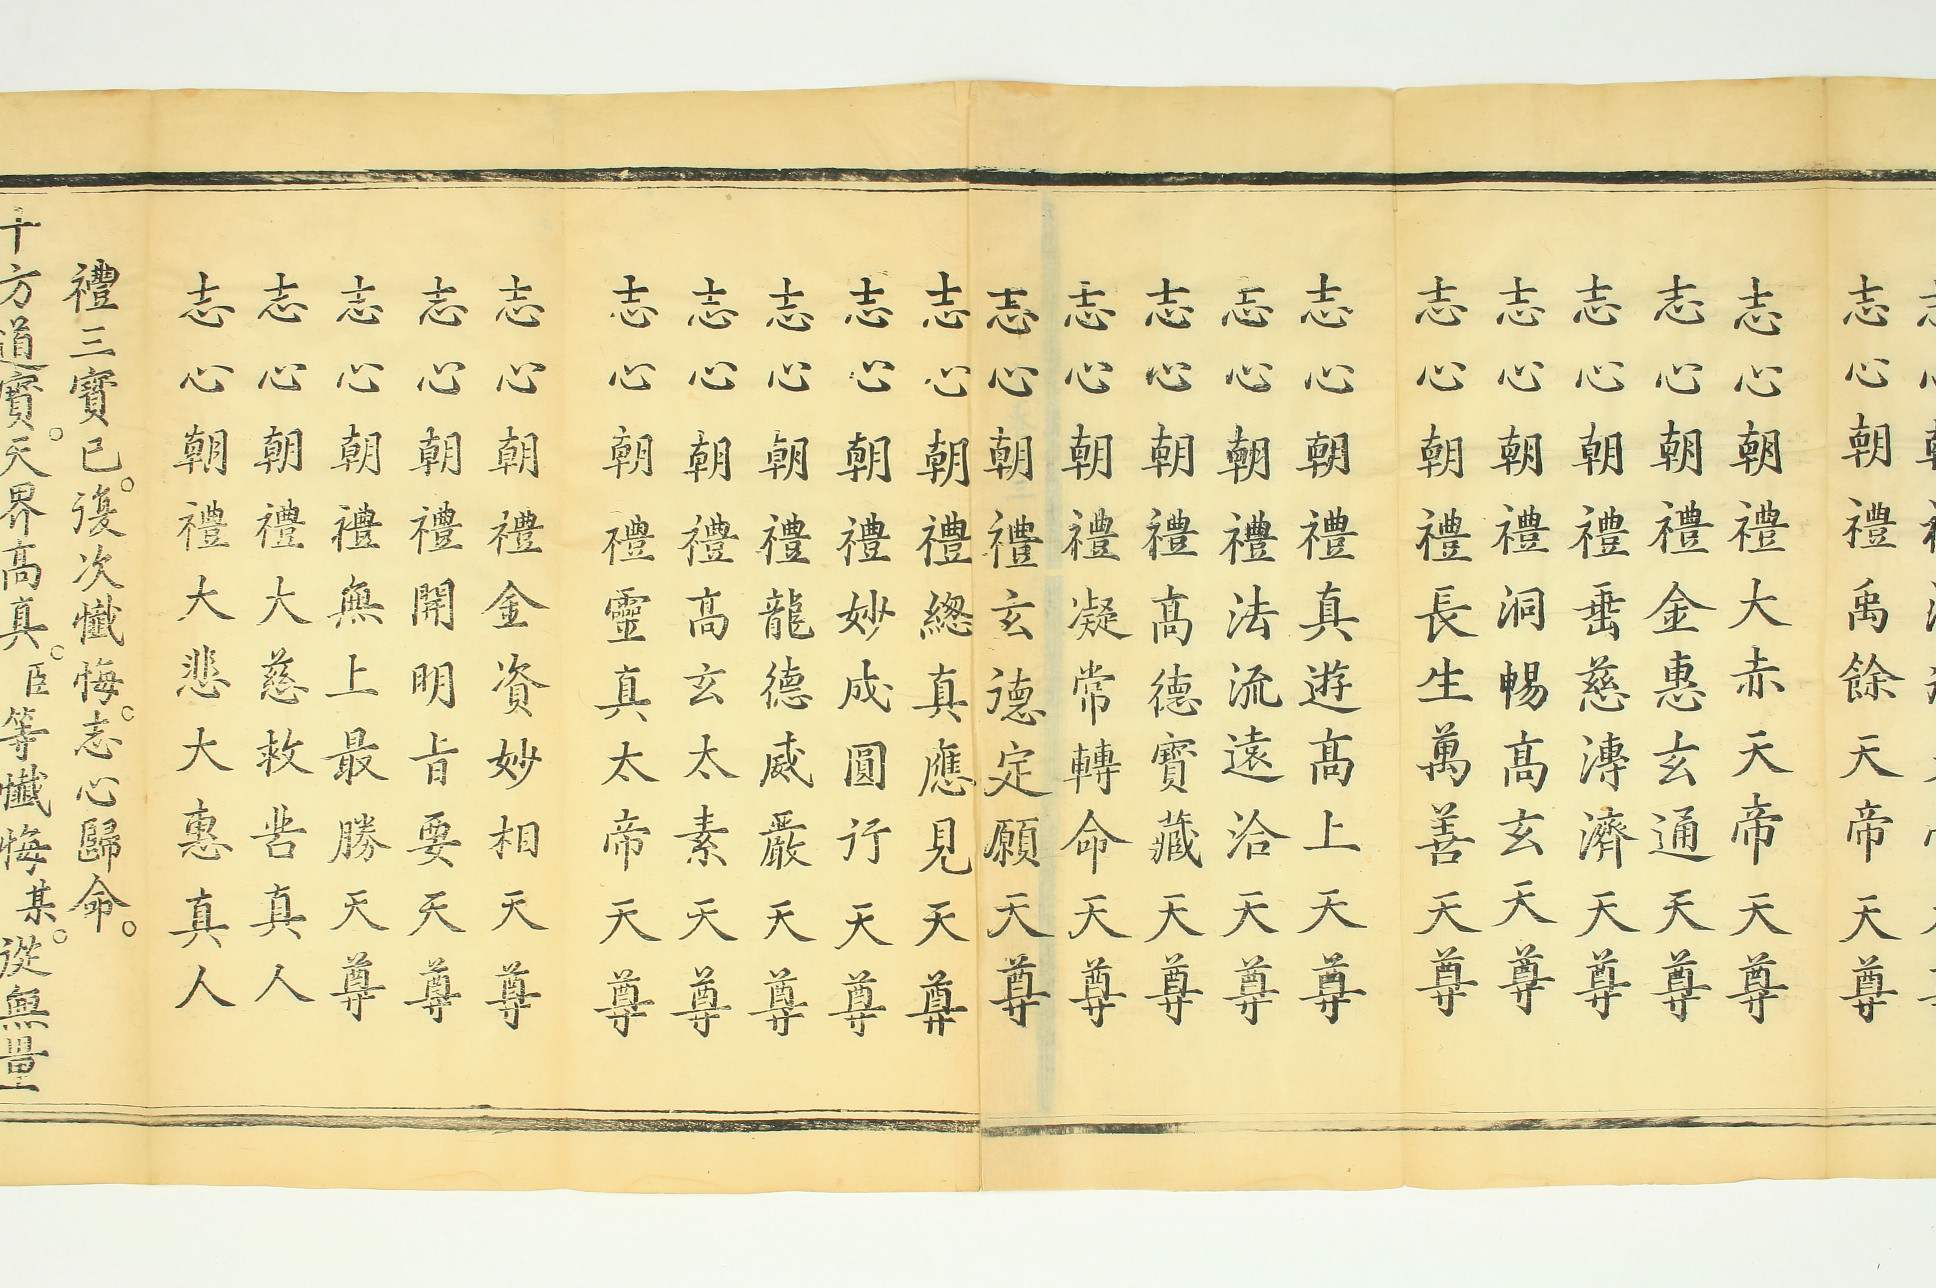 志心朝禮禹餘天帝天尊
志心朝禮大赤天帝天尊
志心朝禮金惠玄通天尊
志心朝禮垂慈溥濟天尊
志心朝禮洞暢高玄天尊
志心朝禮長生萬善天尊
志心朝禮真遊高上天尊
志心朝禮法流遠洽天尊
志心朝禮高德寶藏天尊
志心朝禮凝常轉命天尊
志心朝禮玄德定願天尊
志心朝禮總真應見天尊
志心朝禮妙成圓行天尊
志心朝禮龍德威嚴天尊
志心朝禮高玄太素天尊
志心朝禮靈真太帝天尊
志心朝禮金資妙相天尊
志心朝禮開明旨要天尊
志心朝禮無上最勝天尊
志心朝禮大慈救苦真人
志心朝禮大悲大惠真人
禮三寶已。復次懺悔。志心歸命。
十方道寶。天界高真。臣等懺悔某。從無量